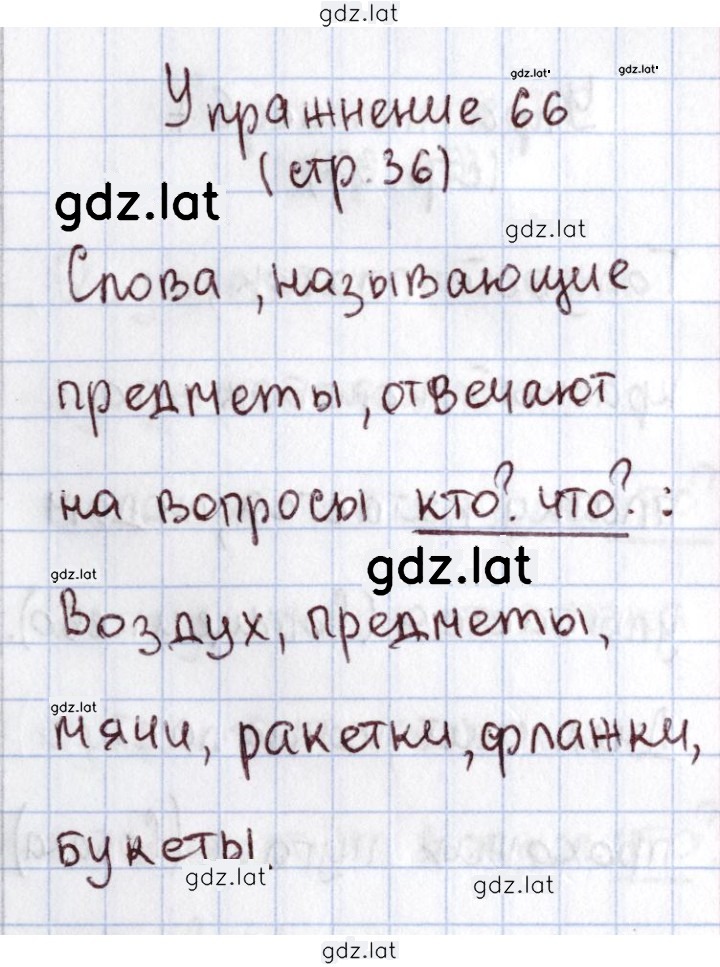 gdz.lat
Упражнение 66
gdz.lat
gdz.lat
(стр. 36)
gdz.lat
gdz.lat
Слова, называющие
предметы, отвечают
на вопросы кто? что? :
gdz.lat
gdz.lat
Воздух, предметы,
gdz.lat
мячи, ракетки, флажки,
букеты.
gdz.lat
gdz.lat
gdz.lat